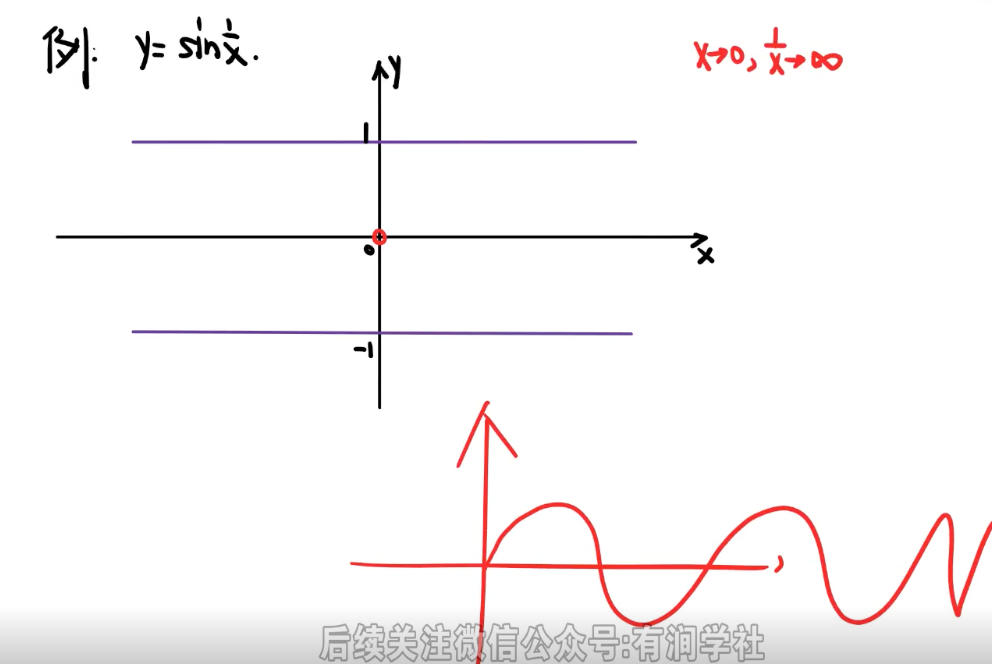 例: y = sin 1/x.
x→0, 1/x→∞
y
1
0
x
-1
后续关注微信公众号:有润学社